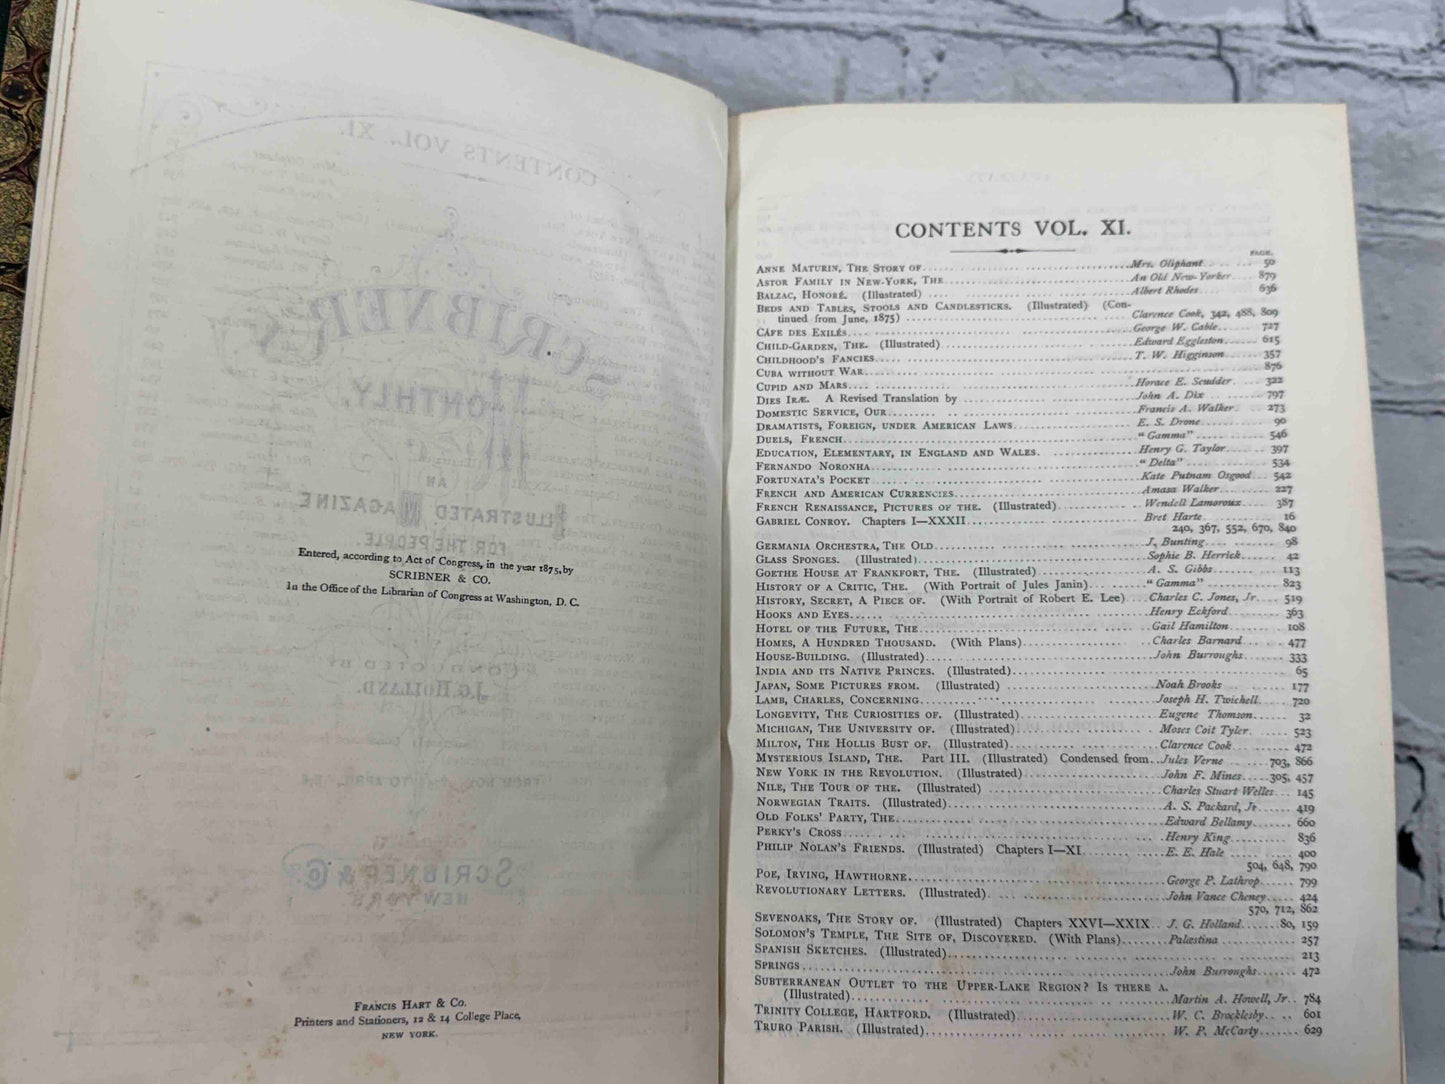 Entered, according to Act of Congress, in the year 1875, by
SCRIBNER & CO.
In the Office of the Librarian of Congress at Washington, D. C.
FRANCIS HART & CO.
Printers and Stationers, 12 & 14 College Place,
NEW YORK.
CONTENTS VOL. XI.
PAGE.
ANNE MATURIN, THE STORY OF Mrs. Oliphant 50
ASTOR FAMILY IN NEW-YORK, THE An Old New-Yorker 879
BALZAC, HONORÉ. (Illustrated) Albert Rhodes 636
BEDS AND TABLES, STOOLS AND CANDLESTICKS. (Illustrated) (Con-
tinued from June, 1875) Clarence Cook, 342, 488, 809
CÁFE DES EXILÉS George W. Cable 727
CHILD-GARDEN, THE. (Illustrated) Edward Eggleston 615
CHILDHOOD'S FANCIES T. W. Higginson 357
CUBA WITHOUT WAR 876
CUPID AND MARS Horace E. Scudder 322
DIES IRÆ. A Revised Translation by John A. Dix 797
DOMESTIC SERVICE, OUR Francis A. Walker 273
DRAMATISTS, FOREIGN, UNDER AMERICAN LAWS E. S. Drone 90
DUELS, FRENCH "Gamma" 546
EDUCATION, ELEMENTARY, IN ENGLAND AND WALES. Henry G. Taylor 397
FERNANDO NORONHA "Delta" 534
FORTUNATA'S POCKET Kate Putnam Osgood 542
FRENCH AND AMERICAN CURRENCIES Amasa Walker 227
FRENCH RENAISSANCE, PICTURES OF THE. (Illustrated) Wendell Lamoroux 387
GABRIEL CONROY. Chapters I—XXXII Bret Harte 16
240, 367, 552, 670, 840
GERMANIA ORCHESTRA, THE OLD J. Bunting 98
GLASS SPONGES. (Illustrated) Sophie B. Herrick 42
GOETHE HOUSE AT FRANKFORT, THE. (Illustrated) A. S. Gibbs 113
HISTORY OF A CRITIC, THE. (With Portrait of Jules Janin) "Gamma" 823
HISTORY, SECRET, A PIECE OF. (With Portrait of Robert E. Lee) Charles C. Jones, Jr. 519
HOOKS AND EYES Henry Eckford 363
HOTEL OF THE FUTURE, THE Gail Hamilton 108
HOMES, A HUNDRED THOUSAND. (With Plans) Charles Barnard 477
HOUSE-BUILDING. (Illustrated) John Burroughs 333
INDIA AND ITS NATIVE PRINCES. (Illustrated) 65
JAPAN, SOME PICTURES FROM. (Illustrated) Noah Brooks 177
LAMB, CHARLES, CONCERNING Joseph H. Twichell 720
LONGEVITY, THE CURIOSITIES OF. (Illustrated) Eugene Thomson 32
MICHIGAN, THE UNIVERSITY OF. (Illustrated) Moses Coit Tyler 523
MILTON, THE HOLLIS BUST OF. (Illustrated) Clarence Cook 472
MYSTERIOUS ISLAND, THE. Part III. (Illustrated) Condensed from Jules Verne 703, 866
NEW YORK IN THE REVOLUTION. (Illustrated) John F. Mines 305, 457
NILE, THE TOUR OF THE. (Illustrated) Charles Stuart Welles 145
NORWEGIAN TRAITS. (Illustrated) A. S. Packard, Jr 419
OLD FOLKS' PARTY, THE Edward Bellamy 660
PERKY'S CROSS Henry King 836
PHILIP NOLAN'S FRIENDS. (Illustrated) Chapters I—XI E. E. Hale 400
504, 648, 790
POE, IRVING, HAWTHORNE George P. Lathrop 799
REVOLUTIONARY LETTERS. (Illustrated) John Vance Cheney 424
570, 712, 862
SEVENOAKS, THE STORY OF. (Illustrated) Chapters XXVI—XXIX J. G. Holland 80, 159
SOLOMON'S TEMPLE, THE SITE OF, DISCOVERED. (With Plans) Palæstina 257
SPANISH SKETCHES. (Illustrated) 213
SPRINGS John Burroughs 472
SUBTERRANEAN OUTLET TO THE UPPER-LAKE REGION? IS THERE A.
(Illustrated) Martin A. Howell, Jr. 784
TRINITY COLLEGE, HARTFORD. (Illustrated) W. C. Brocklesby 601
TRURO PARISH. (Illustrated) W. P. McCarty 629